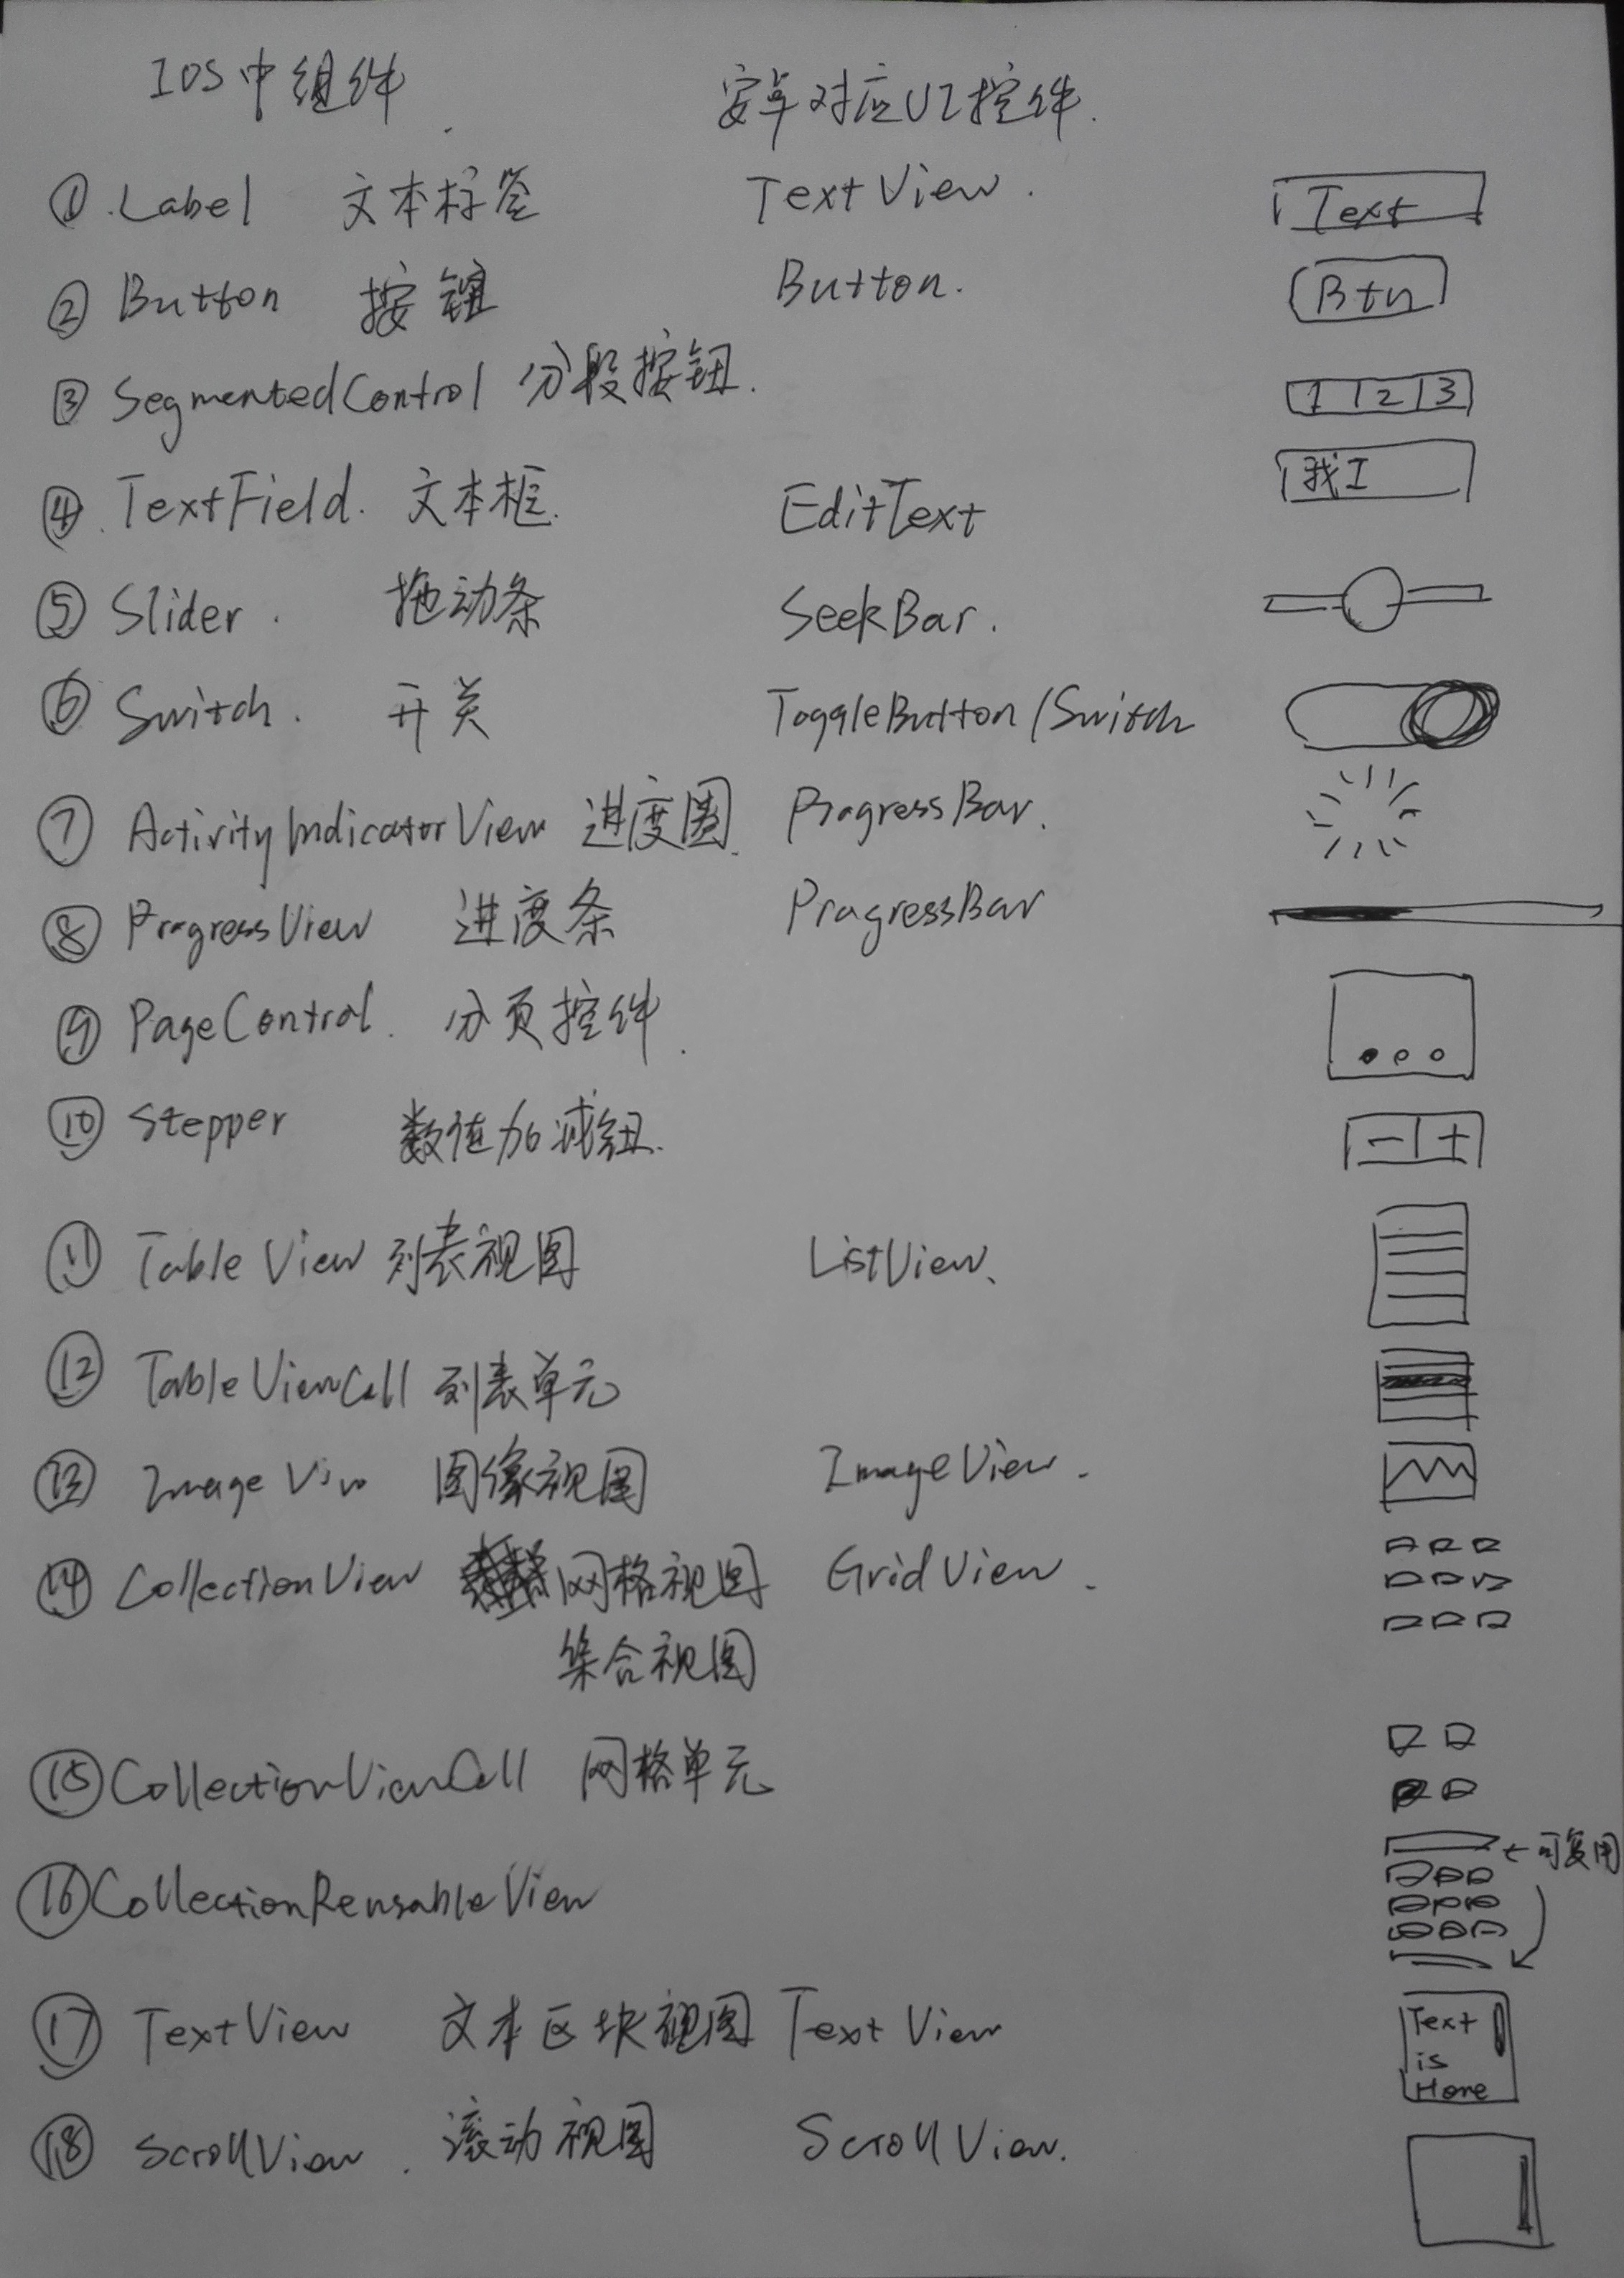 IOS中组件 安卓对应UI控件.
① Label 文本标签 TextView. Text
② Button 按钮 Button. Btn
③ SegmentedControl 分段按钮. 1 | 2 | 3
④ TextField. 文本框. EditText 我I
⑤ Slider. 拖动条 SeekBar.
⑥ Switch. 开关 ToggleButton/Switch
⑦ ActivityIndicatorView 进度圈. ProgressBar.
⑧ ProgressView 进度条 ProgressBar
⑨ PageControl. 分页控件.
⑩ Stepper 数值加减钮. - | +
⑪ TableView 列表视图 ListView、
⑫ TableViewCell 列表单元
⑬ ImageView 图像视图 ImageView.
⑭ CollectionView 网格视图 GridView.
集合视图
⑮ CollectionViewCell 网格单元
←可复用
⑯ CollectionReusableView
⑰ TextView 文本区块视图 TextView Text
is
Here
⑱ ScrollView. 滚动视图 ScrollView.